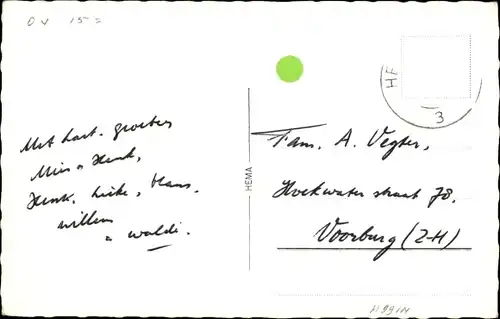 O v 15 =
HE
3
Met hart. groeten
Mien & Henk,
Henk, Lieke, Hans,
willem
& waldi.
HEMA
Fam. A. Vegter,
Hoekwater straat 78,
Voorburg (Z-H)